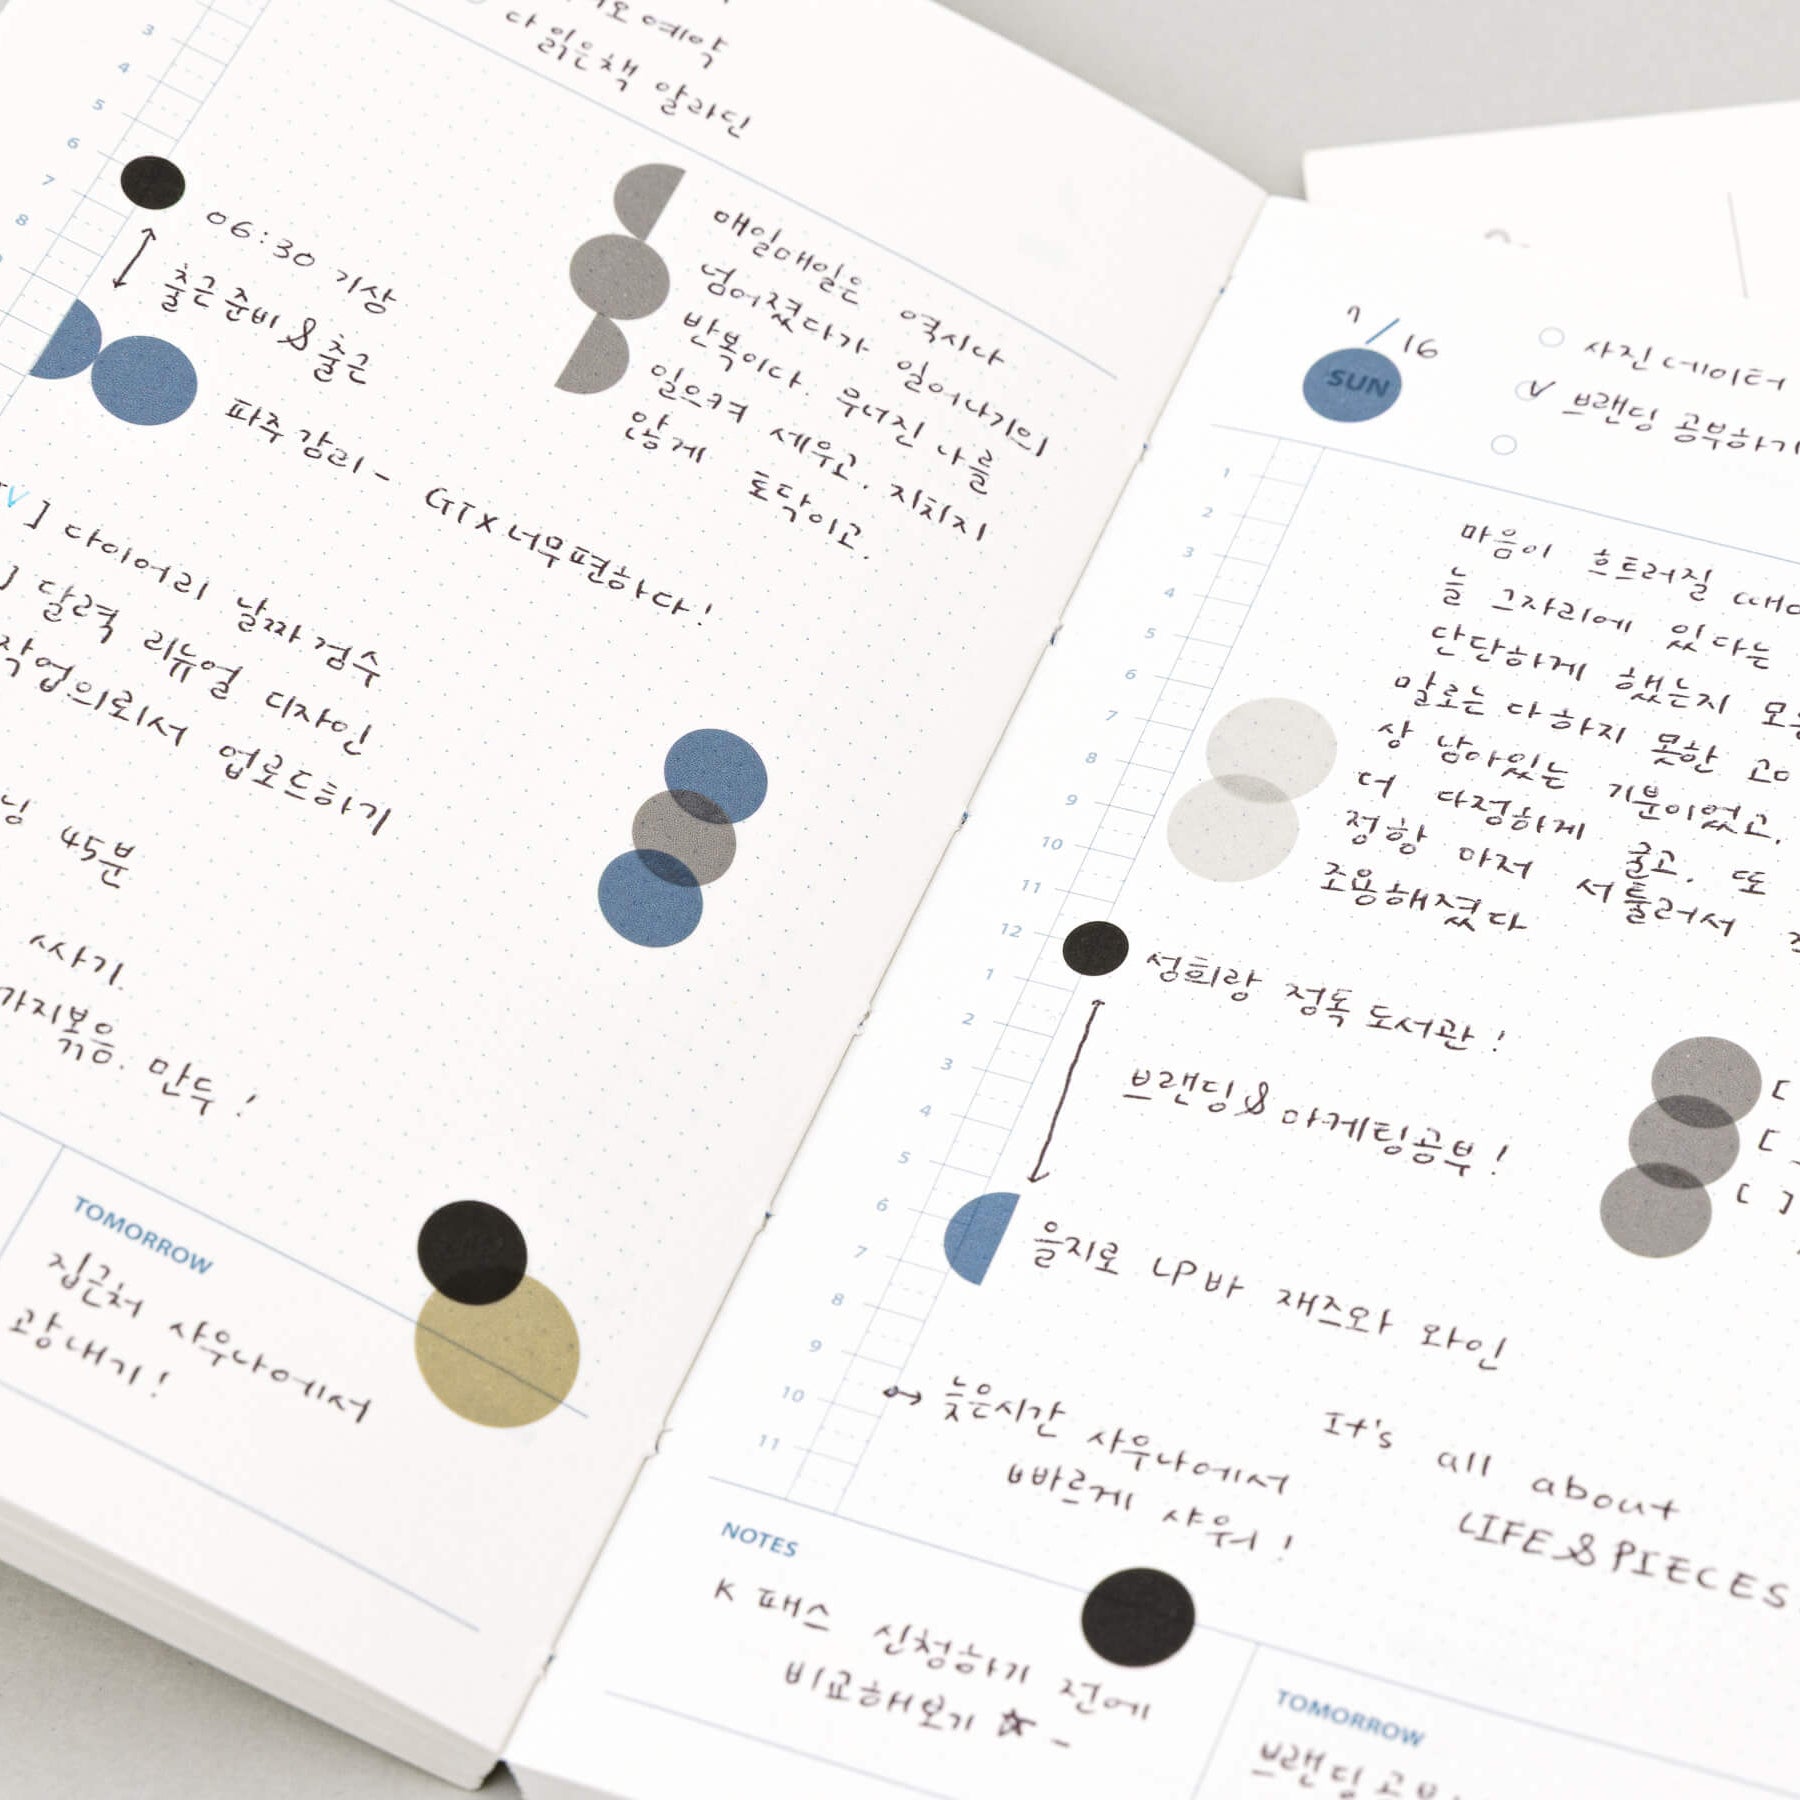 예약
다 읽은책 알라딘
3
4
5
6
7
8
06:30 기상
출근준비 & 출근
파주 감리 - GTX 너무 편하다!
매일매일은 역시나
넘어졌다가 일어나기의
반복이다. 무너진 나를
일으켜 세우고, 지치지
않게 토닥이고.
V ] 다이어리 날짜 검수
] 달력 리뉴얼 디자인
작업의뢰서 업로드하기
닝 45분
싸기.
가지볶음. 만두!
TOMORROW
집근처 사우나에서
광내기!
7/16
SUN
사진 데이터
V 브랜딩 공부하기
1
2
3
4
5
6
7
8
9
10
11
12
1
2
3
4
5
6
7
8
9
10
11
마음이 흐트러질 때
늘 그자리에 있다는
단단하게 했는지 모
말로는 다 하지 못한 고마
상 남아있는 기분이었고.
더 다정하게 굴고. 또
정항 마저 서툴러서
조용해졌다
성희랑 정독도서관!
브랜딩 & 마케팅공부!
[
[
[ ]
을지로 LP바 재즈와 와인
늦은시간 사우나에서
빠르게 샤워!
It's all about
LIFE & PIECES
NOTES
K 패스 신청하기 전에
비교해보기 ☆ -
TOMORROW
브랜딩 공부